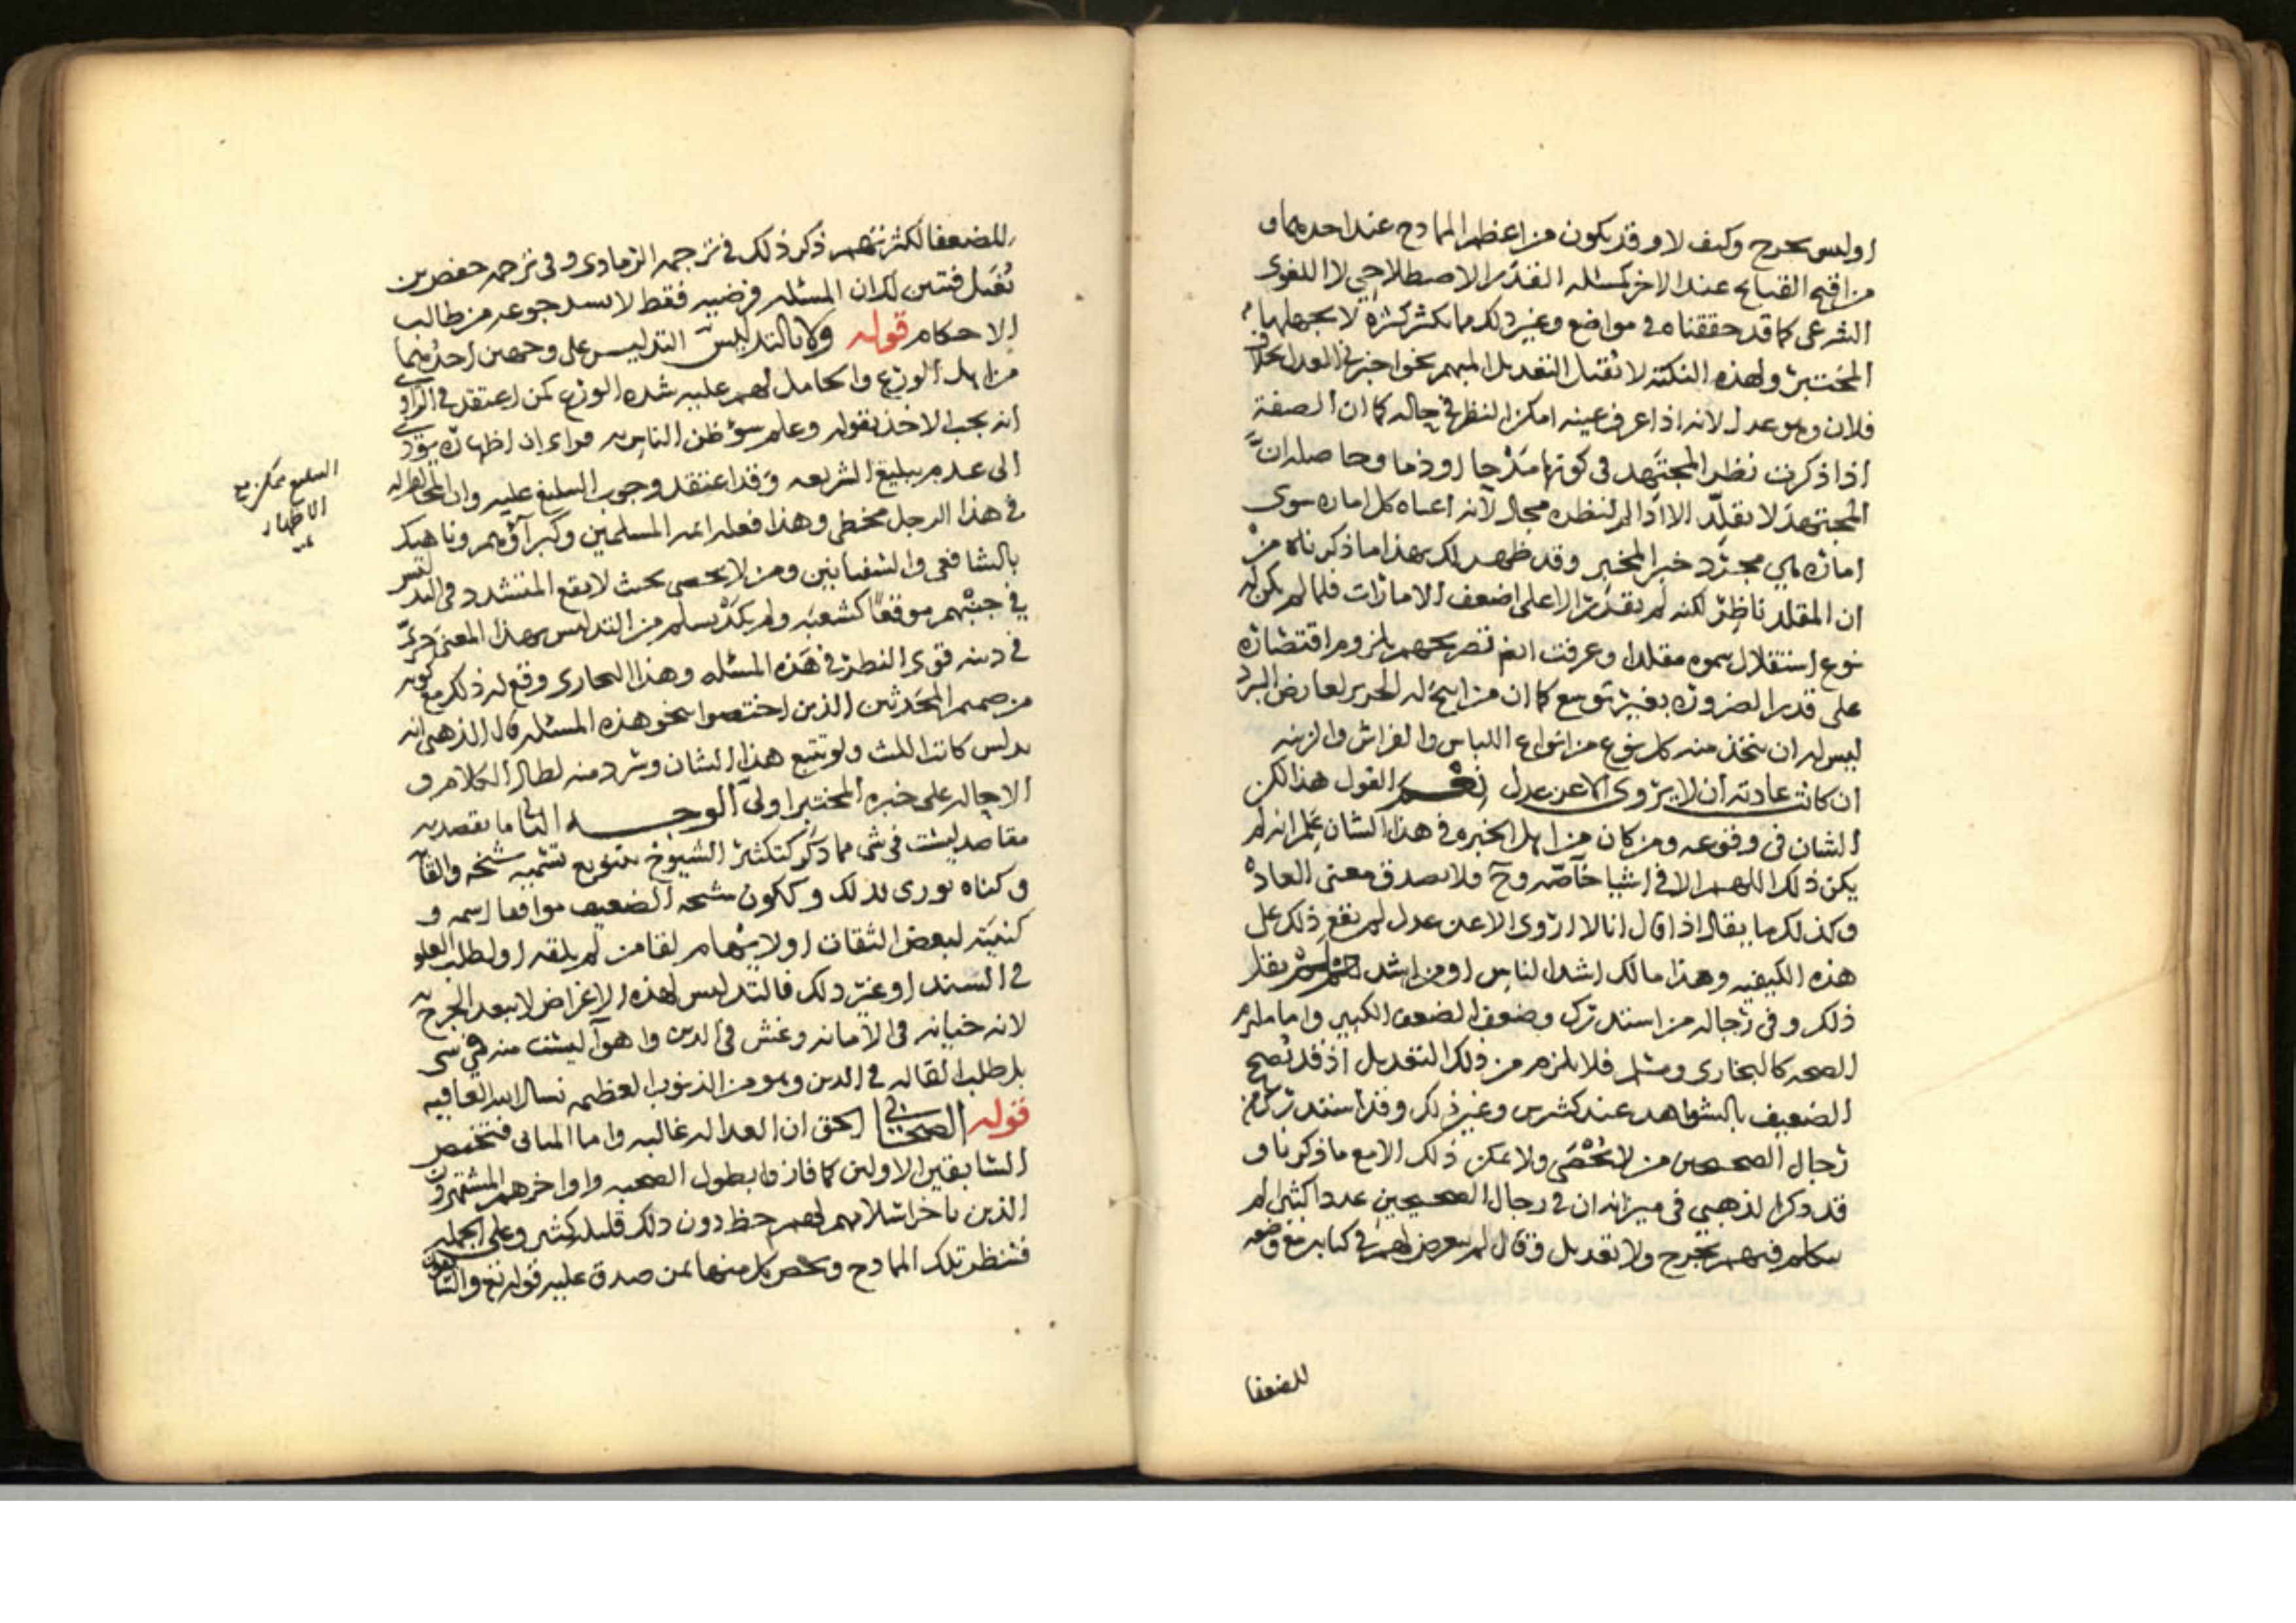 او ليس بجرح وكيف لا وقد يكون من اعظم الممادح عند احدهما و
من اقبح القبايح عند الاخر كمسئله القدر الاصطلاحي لا اللغوى
الشرعى كما قد حققناه فى مواضع وغير ذلك مما يكثر كثرة لا يجهلها
المختبر ولهذه النكتة لا تقبل التعديل المبهم نحو اخبرنى العدل بخلاف
فلان وهو عدل لانه اذا عرف عينه امكن النظر فى حاله كما ان الصفة
اذا ذكرت نظر المجتهد فى كونها مدحا او ذما وحاصله ان
المجتهد لا يقلد الا اذا لم لنظره مجال لانه اعياه كل اماره سوى
امارة هي مجرد خبر المخبر وقد ظهر لك بهذا ما ذكرناه من
ان المقلد ناظر لكنه لم يقدر الا على اضعف الامارات فلما لم يكن له
نوع استقلال سموه مقلدا وعرفت انفا تصريحهم بلزوم اقتصاره
على قدر الضرورة بغير توسع كما ان من ابيح له الحرير لعارض البرد
ليس له ان يتخذ منه كل نوع من انواع اللباس والفراش والزينه
ان كانت عادته ان لا يروى الا عن عدل نعم القول هذا لكن
الشان فى وقوعه ومن كان من اهل الخبره فى هذا الشان علم انه لم
يكن ذلك اللهم الا فى اشيا خاصه وح فلا يصدق معنى العاده
وكذلك ما يقال اذا قال انا لا اروى الا عن عدل لم يقع ذلك على
هذه الكيفيه وهذا مالك اشد الناس او من اشد يقل
ذلك وفى رجاله من استد ترك وضعف الضعف الكبير واما ملتزم
الصحه كالبخارى ومسلم فلا يلزم من ذلك التعديل اذ قد تصح
الضعيف بالشواهد عند كثيرين وغير ذلك وقد استد ترك من
رجال الصحيحين من لا يحصى ولا يمكن ذلك الا مع ما ذكرنا و
قد ذكر الذهبي فى ميزانه ان فى رجال الصحيحين عددا كثيرا لم
يتكلم فيهم بجرح ولا تعديل وقال لم يتعرض لهم فى كتابه مع وضعه
للضعفا
للضعفا لكثرتهم ذكر ذلك فى ترجمه الزمادى وفى ترجمه حفص بن
بُغَيل فتبين لك ان المسئله فرضيه فقط لا يسد جوعه من طالب
الاحكام قوله ولا بالتدليس التدليس على وجهين احدهما
من اهل الورع والحامل لهم عليه شده الورع كمن اعتقد فى الراوى
انه يجب الاخذ بقوله وعلم سوء ظن الناس به فراى ان اظهاره يؤدى
الى عدم تبليغ الشريعه وقد اعتقد وجوب التبليغ عليه وان المخالف له
فى هذا الرجل مخطى وهذا فعله ائمه المسلمين وكبراؤهم وناهيك
بالشافعى والسفيانين ومن لا يحصى بحيث لا يقع المتشدد فى التدليس
فى جنبهم موقعا كشعبه ولم يكد يسلم من التدليس بهذا المعنى
فى دينه قوى النظر فى هذه المسئله وهذا البخارى وقع له ذلك مع كونه
من صميم المحدثين الذين اختصوا بنحو هذه المسئله قال الذهبى انه
يدلس كاتب الليث ولو تتبع هذا الشان وشرد منه لطال الكلام و
الاحاله على خبره المختبر اولى الوجه الثانى ما يقصد به
مقاصد ليست فى شى مما ذكر كتكثير الشيوخ بتنويع تسميه شيخه والقابه
وكناه يورى بذلك وككون شيخه الضعيف موافقا اسمه و
كنيته لبعض الثقات او لايهام لقا من لم يلقه او لطلب العلو
فى السند او غير ذلك فالتدليس لهذه الاغراض لا يبعد الجرح به
لانه خيانه فى الامانه وغش فى الدين واهوا ليست منه فى شى
بل طلب لقاله فى الدين وهو من الذنوب العظيمه نسال الله العافيه
قوله الصحابى الحق ان العداله غالبه واما المثانى فتختص
السابقين الاولين كما فازوا بطول الصحبه واواخرهم المشتهرون
الذين تاخر اسلامهم لهم حظ دون ذلك قليل كثير وعلى الجمله
فتنظر تلك الممادح وتخص كل منها بمن صدق عليه قوله تع والسابقون
التبليغ ممكن مع
الاظهار